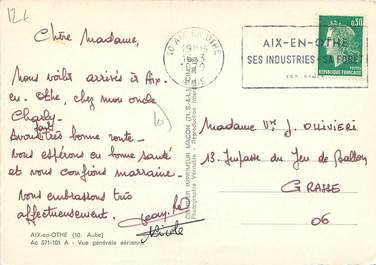 12€
Chère Madame,
Nous voilà arrivés à Aix-
en-Othe, chez mon oncle
Charly-
Avons très bonne route-
fait
vous espérons en bonne santé
et vous confions marraine-
Nous embrassons très
affectueusement.
Nicole
AIX-en-OTHE (10. Aube)
Ac 571-101 A - Vue générale aérienne
COMBIER IMPRIMEUR MACON (71. S.-&-L.)
10 AIX EN OTHE
AUBE
AIX-EN-OTHE
SES INDUSTRIES - SA FORÊT
0,30
REPUBLIQUE FRANÇAISE
Madame Vve J. OLIVIERI
13 Impasse du Jeu de Ballon
GRASSE
06